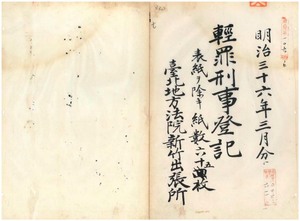 明治三十六年三月分
輕罪刑事登記
表紙ヲ除キ紙數六十五枚
臺北地方法院新竹出張所